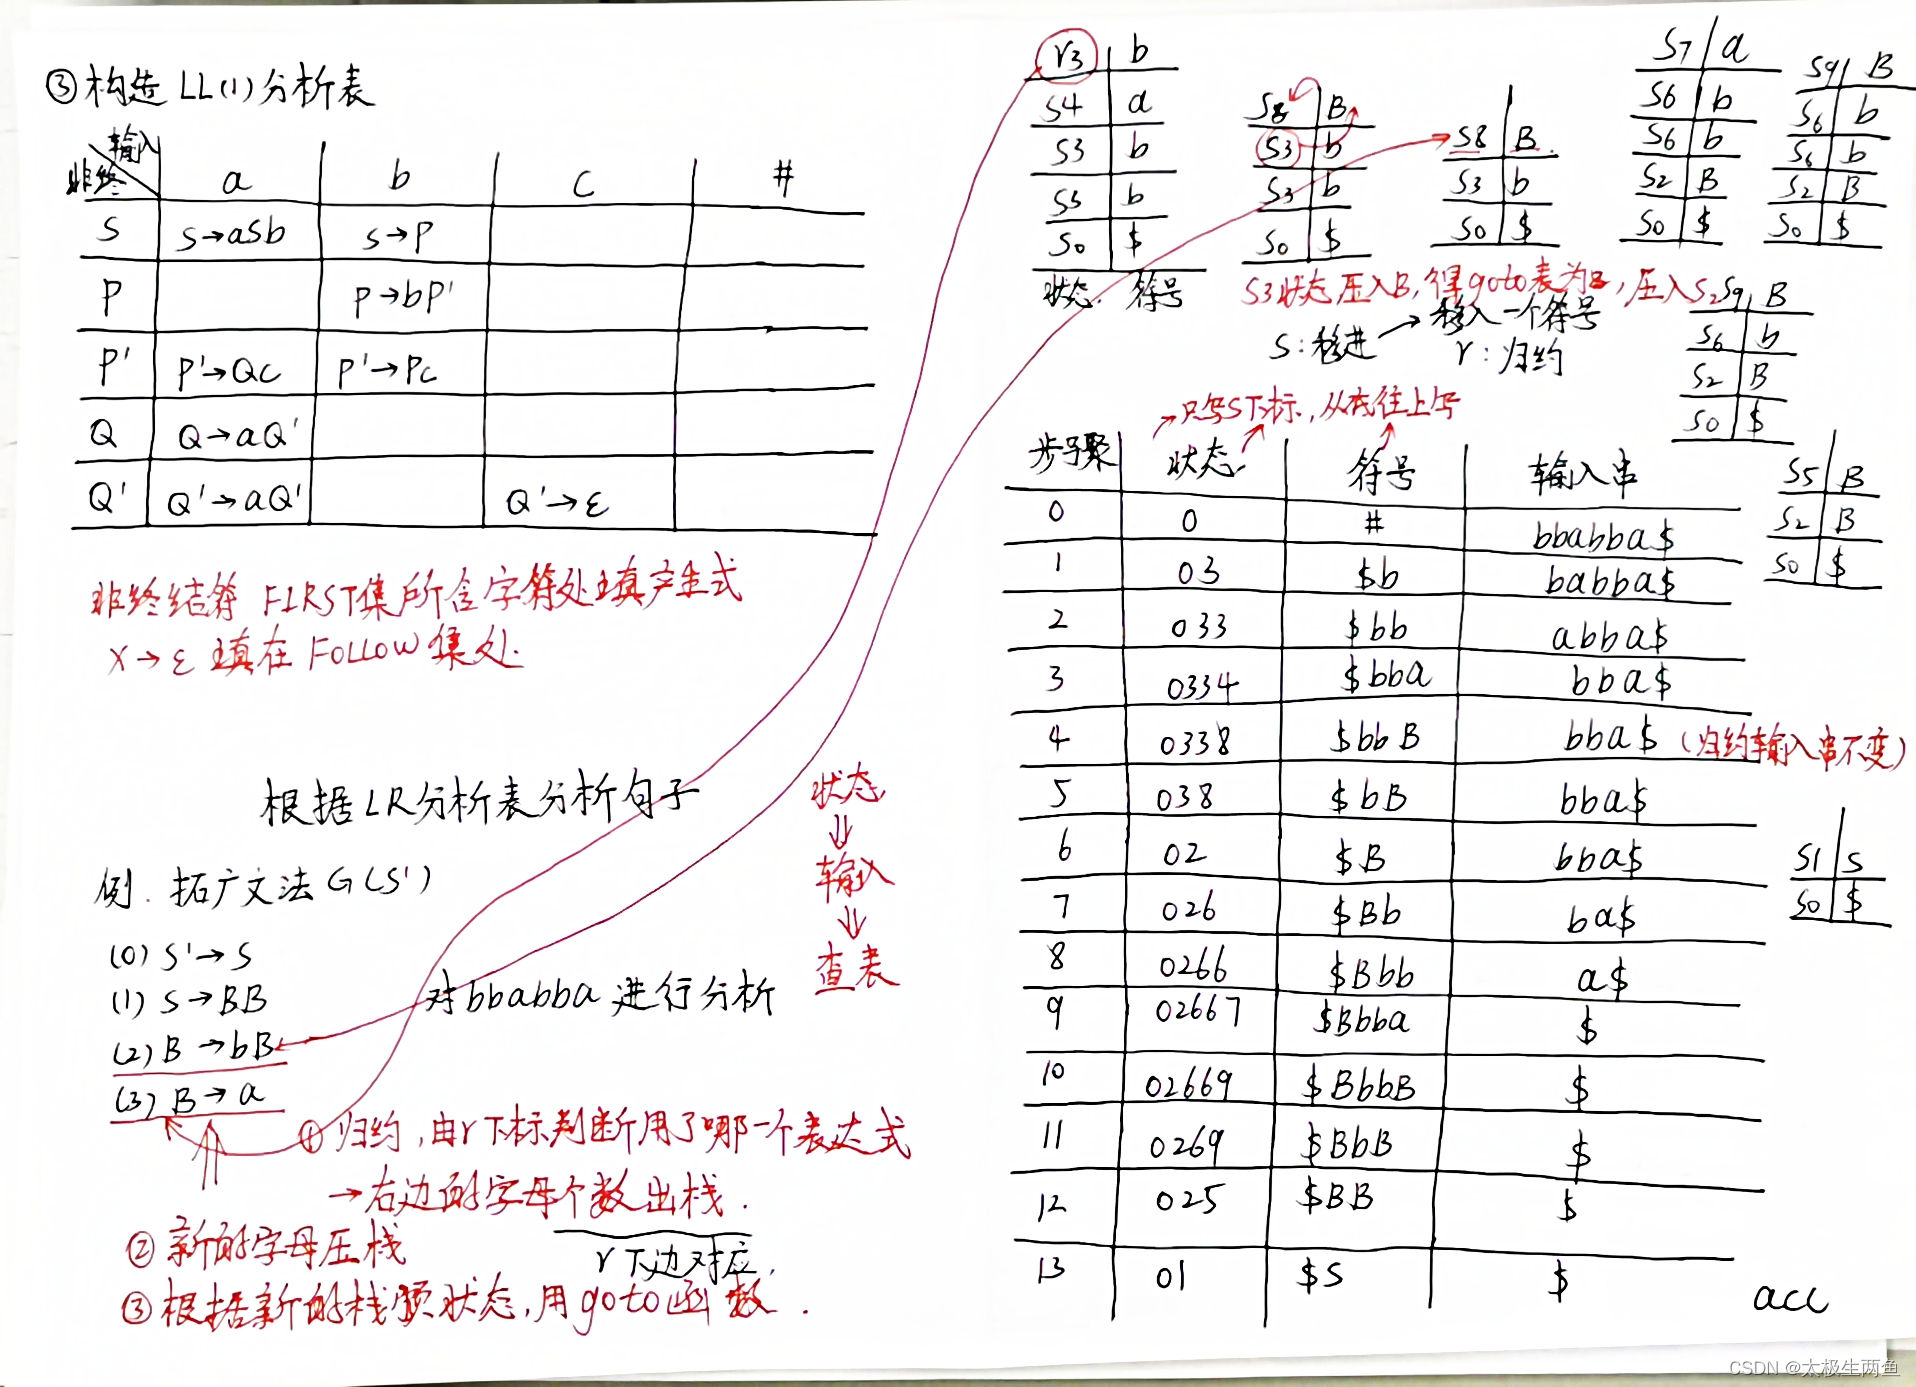 ③构造 LL(1)分析表
输入
非终 a b c #
S S→aSb S→P
P P→bP'
P' P'→Qc P'→Pc
Q Q→aQ'
Q' Q'→aQ' Q'→ε
非终结符 FIRST集所含字符处填产生式
X→ε 填在 FOLLOW集处.
根据LR分析表分析句子
例. 拓广文法G(S')
(0) S'→S
(1) S→BB
(2) B→bB
(3) B→a
对bbabba进行分析
状态
⇓
输入
⇓
查表
① 归约,由r下标判断用了哪一个表达式
→右边的字母个数出栈.
r下边对应.
② 新的字母压栈
③ 根据新的栈顶状态,用goto函数.
r3 b
S4 a
S3 b
S3 b
S0 $
状态. 符号
S8 B
S3 b
S3 b
S0 $
S8 B.
S3 b
S0 $
S7 a
S6 b
S6 b
S2 B
S0 $
S9 B
S6 b
S6 b
S2 B
S0 $
S3状态压入B,得goto表为8,压入S2
S:移进→移入一个符号
r:归约
S9 B
S6 b
S2 B
S0 $
S5 B
S2 B
S0 $
S1 S
S0 $
→只写S下标,从底往上写
步骤 状态 符号 输入串
0 0 # bbabba$
1 03 $b babba$
2 033 $bb abba$
3 0334 $bba bba$
4 0338 $bbB bba$ (归约输入串不变)
5 038 $bB bba$
6 02 $B bba$
7 026 $Bb ba$
8 0266 $Bbb a$
9 02667 $Bbba $
10 02669 $BbbB $
11 0269 $BbB $
12 025 $BB $
13 01 $S $
acc
CSDN @太极生两鱼